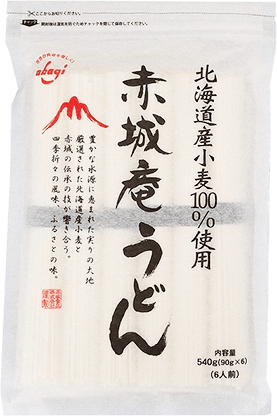 ここからお切りください。
開封後は湿気を防ぐためチャックを閉じて保存してください。
akagi
北海道産小麦100%使用
赤城庵うどん
豊かな水源に恵まれた実りの大地
厳選された北海道産小麦と
赤城の伝承の技が響き合う。
四季折々の風味、ふるさとの味。
内容量
540g(90g×6)
(6人前)